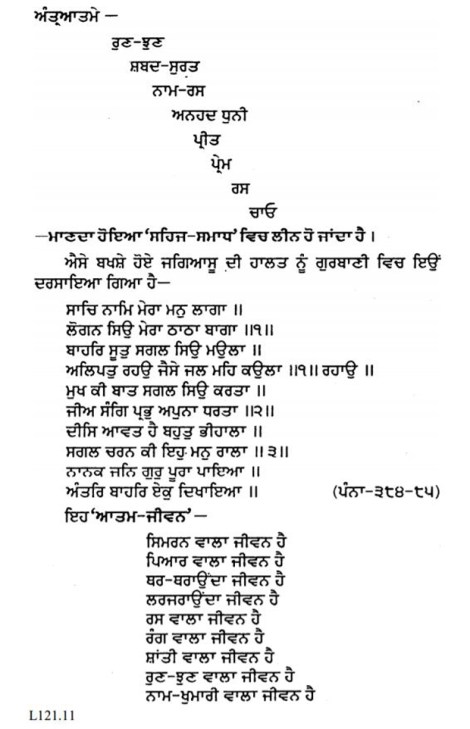 ਅੰਤ੍ਰਆਤਮੇ –
ਰੁਣ-ਝੁਣ
ਸ਼ਬਦ-ਸੁਰਤ
ਨਾਮ-ਰਸ
ਅਨਹਦ ਧੁਨੀ
ਪ੍ਰੀਤ
ਪ੍ਰੇਮ
ਰਸ
ਚਾਓ
—ਮਾਣਦਾ ਹੋਇਆ ‘ਸਹਿਜ-ਸਮਾਧ’ ਵਿਚ ਲੀਨ ਹੋ ਜਾਂਦਾ ਹੈ ।
ਐਸੇ ਬਖਸ਼ੇ ਹੋਏ ਜਗਿਆਸੂ ਦੀ ਹਾਲਤ ਨੂੰ ਗੁਰਬਾਣੀ ਵਿਚ ਇਉਂ
ਦਰਸਾਇਆ ਗਿਆ ਹੈ—
ਸਾਚਿ ਨਾਮਿ ਮੇਰਾ ਮਨੁ ਲਾਗਾ ॥
ਲੋਗਨ ਸਿਉ ਮੇਰਾ ਠਾਠਾ ਬਾਗਾ ॥੧॥
ਬਾਹਰਿ ਸੂਤੁ ਸਗਲ ਸਿਉ ਮਉਲਾ ॥
ਅਲਿਪਤੁ ਰਹਉ ਜੈਸੇ ਜਲ ਮਹਿ ਕਉਲਾ ॥੧॥ ਰਹਾਉ ॥
ਮੁਖ ਕੀ ਬਾਤ ਸਗਲ ਸਿਉ ਕਰਤਾ ॥
ਜੀਅ ਸੰਗਿ ਪ੍ਰਭੁ ਅਪੁਨਾ ਧਰਤਾ ॥੨॥
ਦੀਸਿ ਆਵਤ ਹੈ ਬਹੁਤੁ ਭੀਹਾਲਾ ॥
ਸਗਲ ਚਰਨ ਕੀ ਇਹੁ ਮਨੁ ਰਾਲਾ ॥੩॥
ਨਾਨਕ ਜਨਿ ਗੁਰੁ ਪੂਰਾ ਪਾਇਆ ॥
ਅੰਤਰਿ ਬਾਹਰਿ ਏਕੁ ਦਿਖਾਇਆ ॥ (ਪੰਨਾ-੩੮੪-੮੫)
ਇਹ ‘ਆਤਮ-ਜੀਵਨ’ –
ਸਿਮਰਨ ਵਾਲਾ ਜੀਵਨ ਹੈ
ਪਿਆਰ ਵਾਲਾ ਜੀਵਨ ਹੈ
ਥਰ-ਥਰਾਉਂਦਾ ਜੀਵਨ ਹੈ
ਲਰਜਰਾਉਂਦਾ ਜੀਵਨ ਹੈ
ਰਸ ਵਾਲਾ ਜੀਵਨ ਹੈ
ਰੰਗ ਵਾਲਾ ਜੀਵਨ ਹੈ
ਸ਼ਾਂਤੀ ਵਾਲਾ ਜੀਵਨ ਹੈ
ਰੁਣ-ਝੁਣ ਵਾਲਾ ਜੀਵਨ ਹੈ
ਨਾਮ-ਖੁਮਾਰੀ ਵਾਲਾ ਜੀਵਨ ਹੈ
L121.11